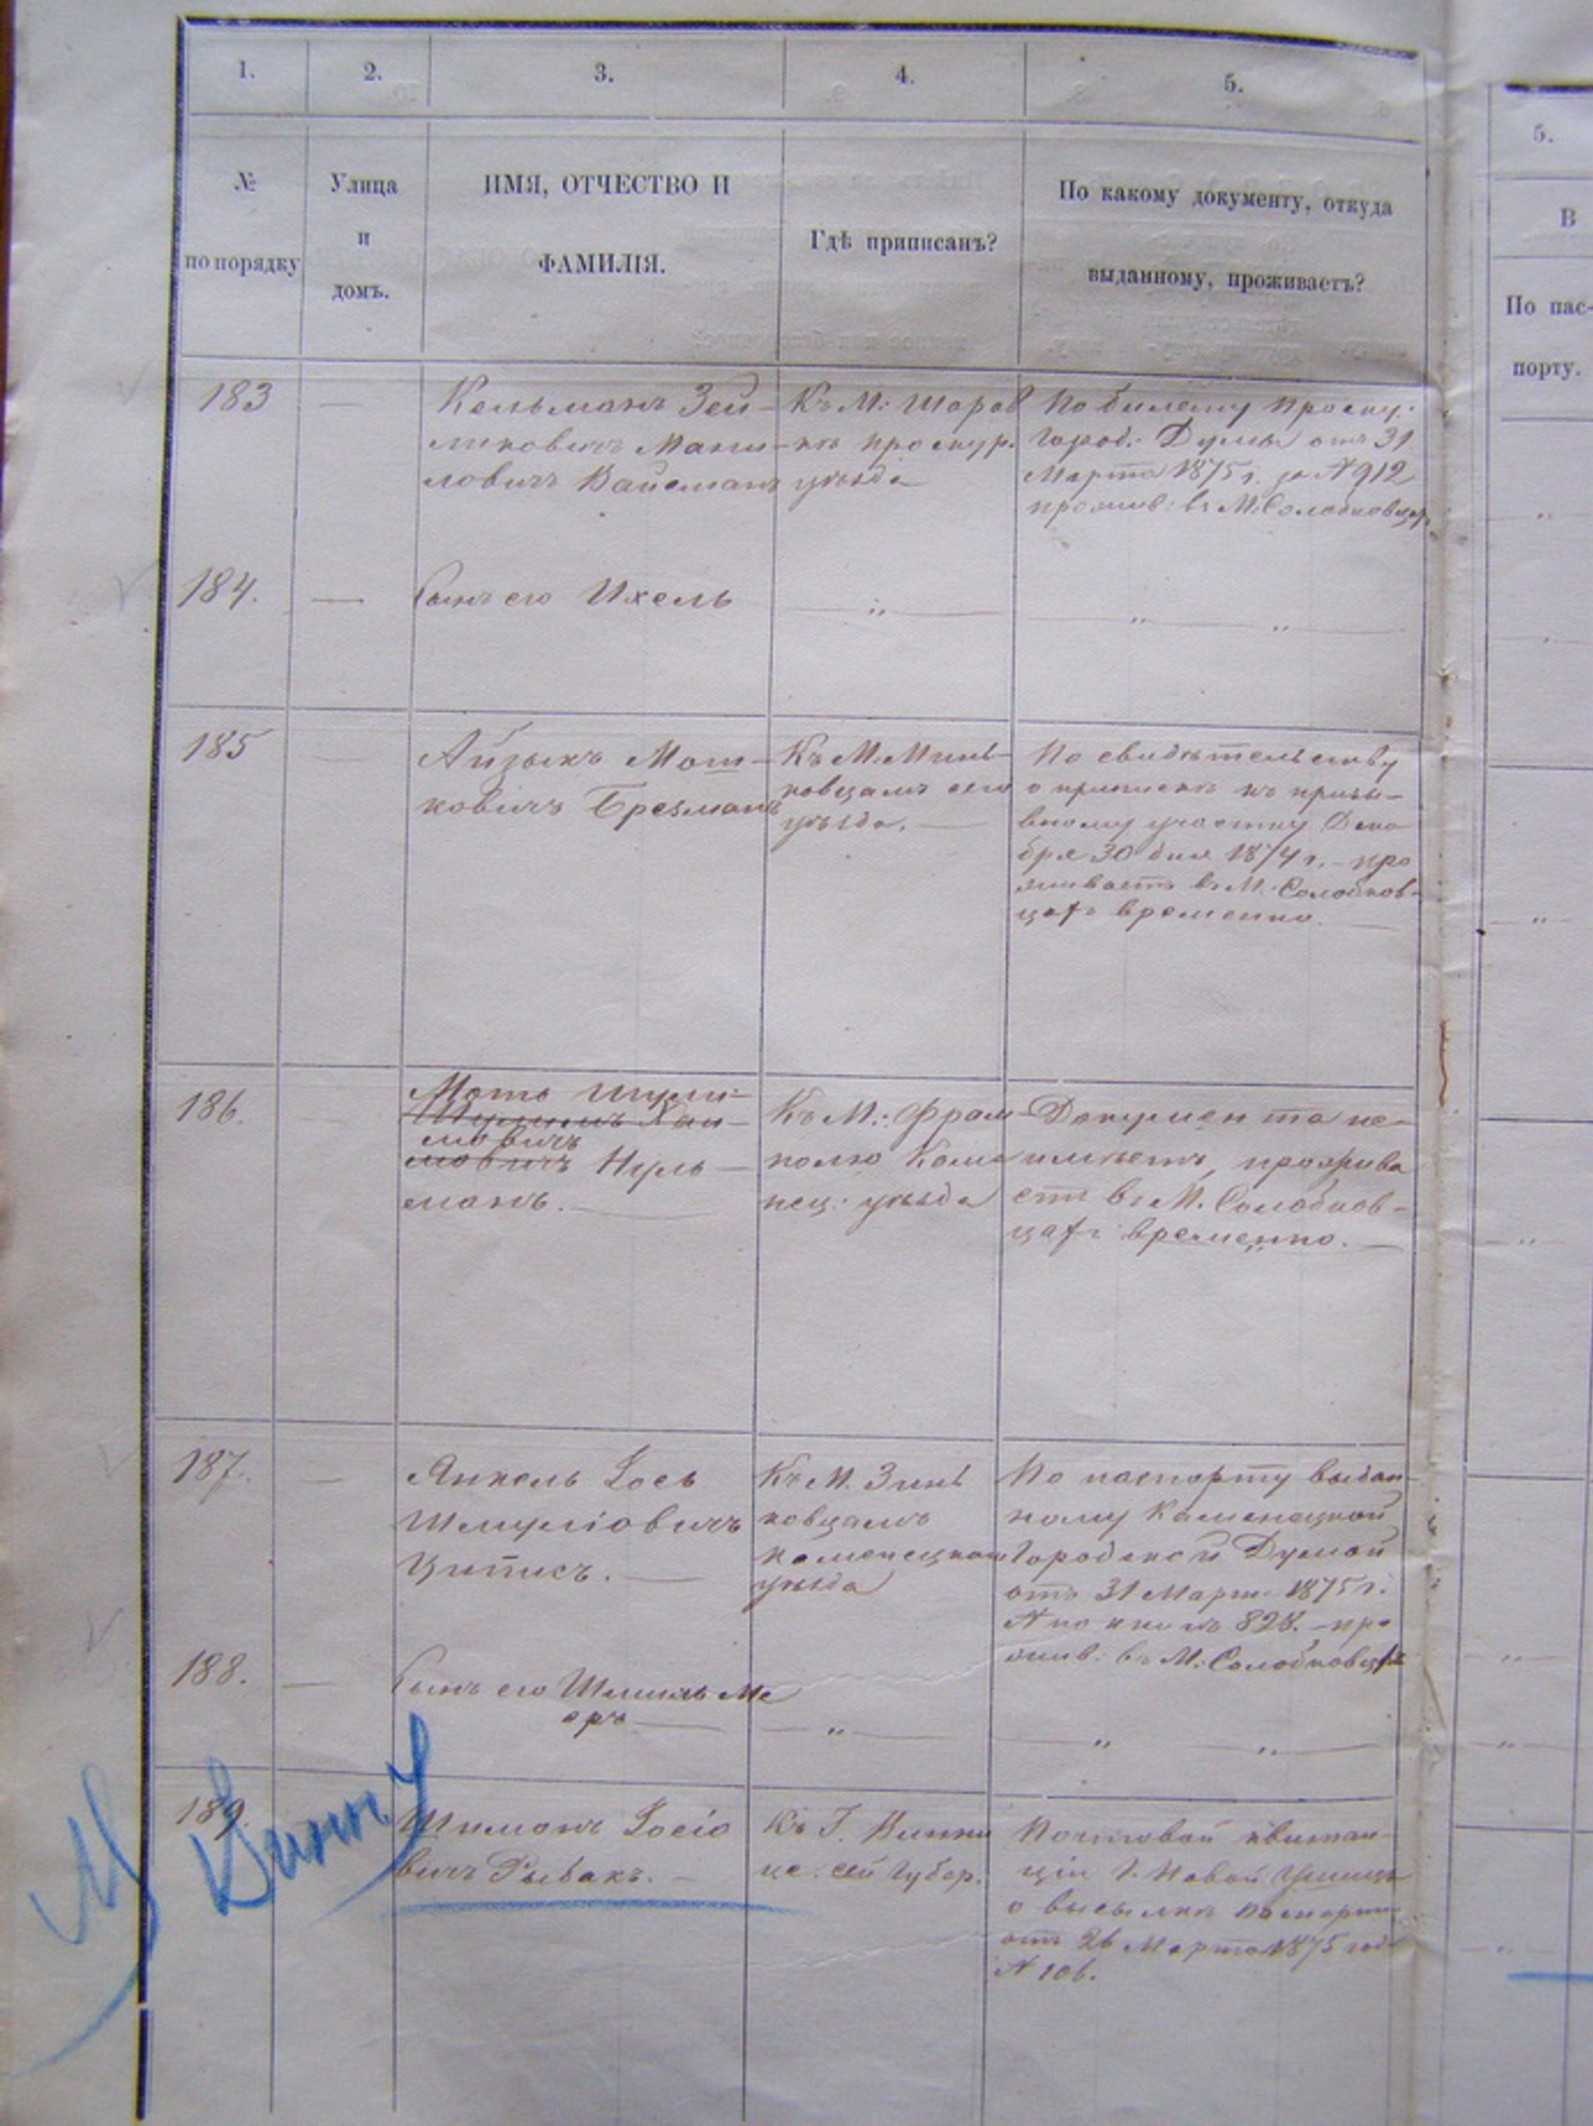 1. 2. 3. 4. 5.
№
по порядку
Улица
и
домъ.
ИМЯ, ОТЧЕСТВО И
ФАМИЛІЯ.
Гдѣ приписанъ?
По какому документу, откуда
выданному, проживаетъ?
5.
В
По пас-
порту.
183
—
Кельманъ Зей-
ликовичъ Мани-
ловичъ Вайсманъ
Къ М: Шаров
кѣ проскур.
уѣзда
По билету Проску:
Город: Думы отъ 31
Марта 1875 г. за N 912
прожив: въ М. Солобковцахъ
184.
—
Сынъ его Ихель
— „ —
— „ „ —
185
Айзыкъ Мош-
ковичъ Брезманъ
Къ М. Минь-
ковцамъ сего
уѣзда. —
По свидѣтельству
о припискѣ къ призы-
вному участку Дека
бря 30 дня 1874 г. – про
живаетъ въ М. Солобков-
цахъ временно. —
186.
Мото Шули-
Шулимъ Хаи-
мовичъ
мовичъ Нуль-
манъ. —
Къ М: Фрам
полю Каме
нец: уѣзда
Документа не-
имѣетъ, прожива
етъ въ М. Солобков-
цахъ временно. —
187.
—
Янкель Іось
Шмуліовичъ
Циписъ. —
Къ М. Зинь
ковцамъ
каменецкаго
уѣзда
По паспорту выдан-
ному Каменецкой
Городской Думой
отъ 31 Марта 1875 г.
N по книгѣ 828. – про
жив: въ М. Солобковцахъ
188.
—
Сынъ его Шмиль Ме
еръ —
— „ —
— „ „ —
189.
Шимонъ Іосіо
вичъ Рыбакъ. –
Къ Г. Винни
це. сей Губер.
Почтовой квитан-
ціи Г. Новой Ушицы
о высылкѣ паспорта
отъ 26 Марта 1875 года
N 106.